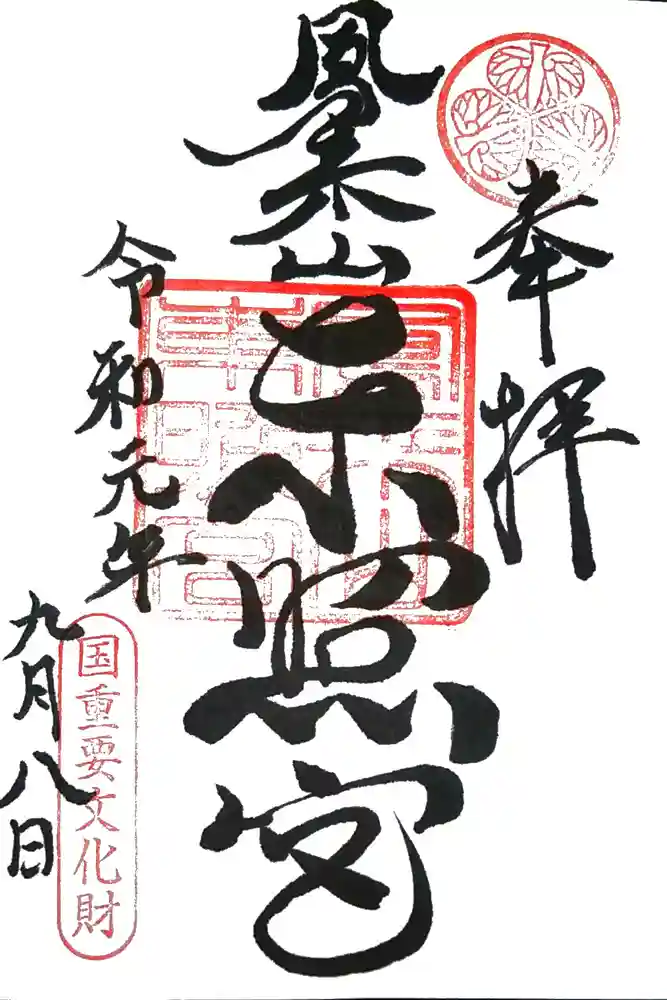 奉拝
鳳来山東照宮
令和元年
九月八日
国重要文化財